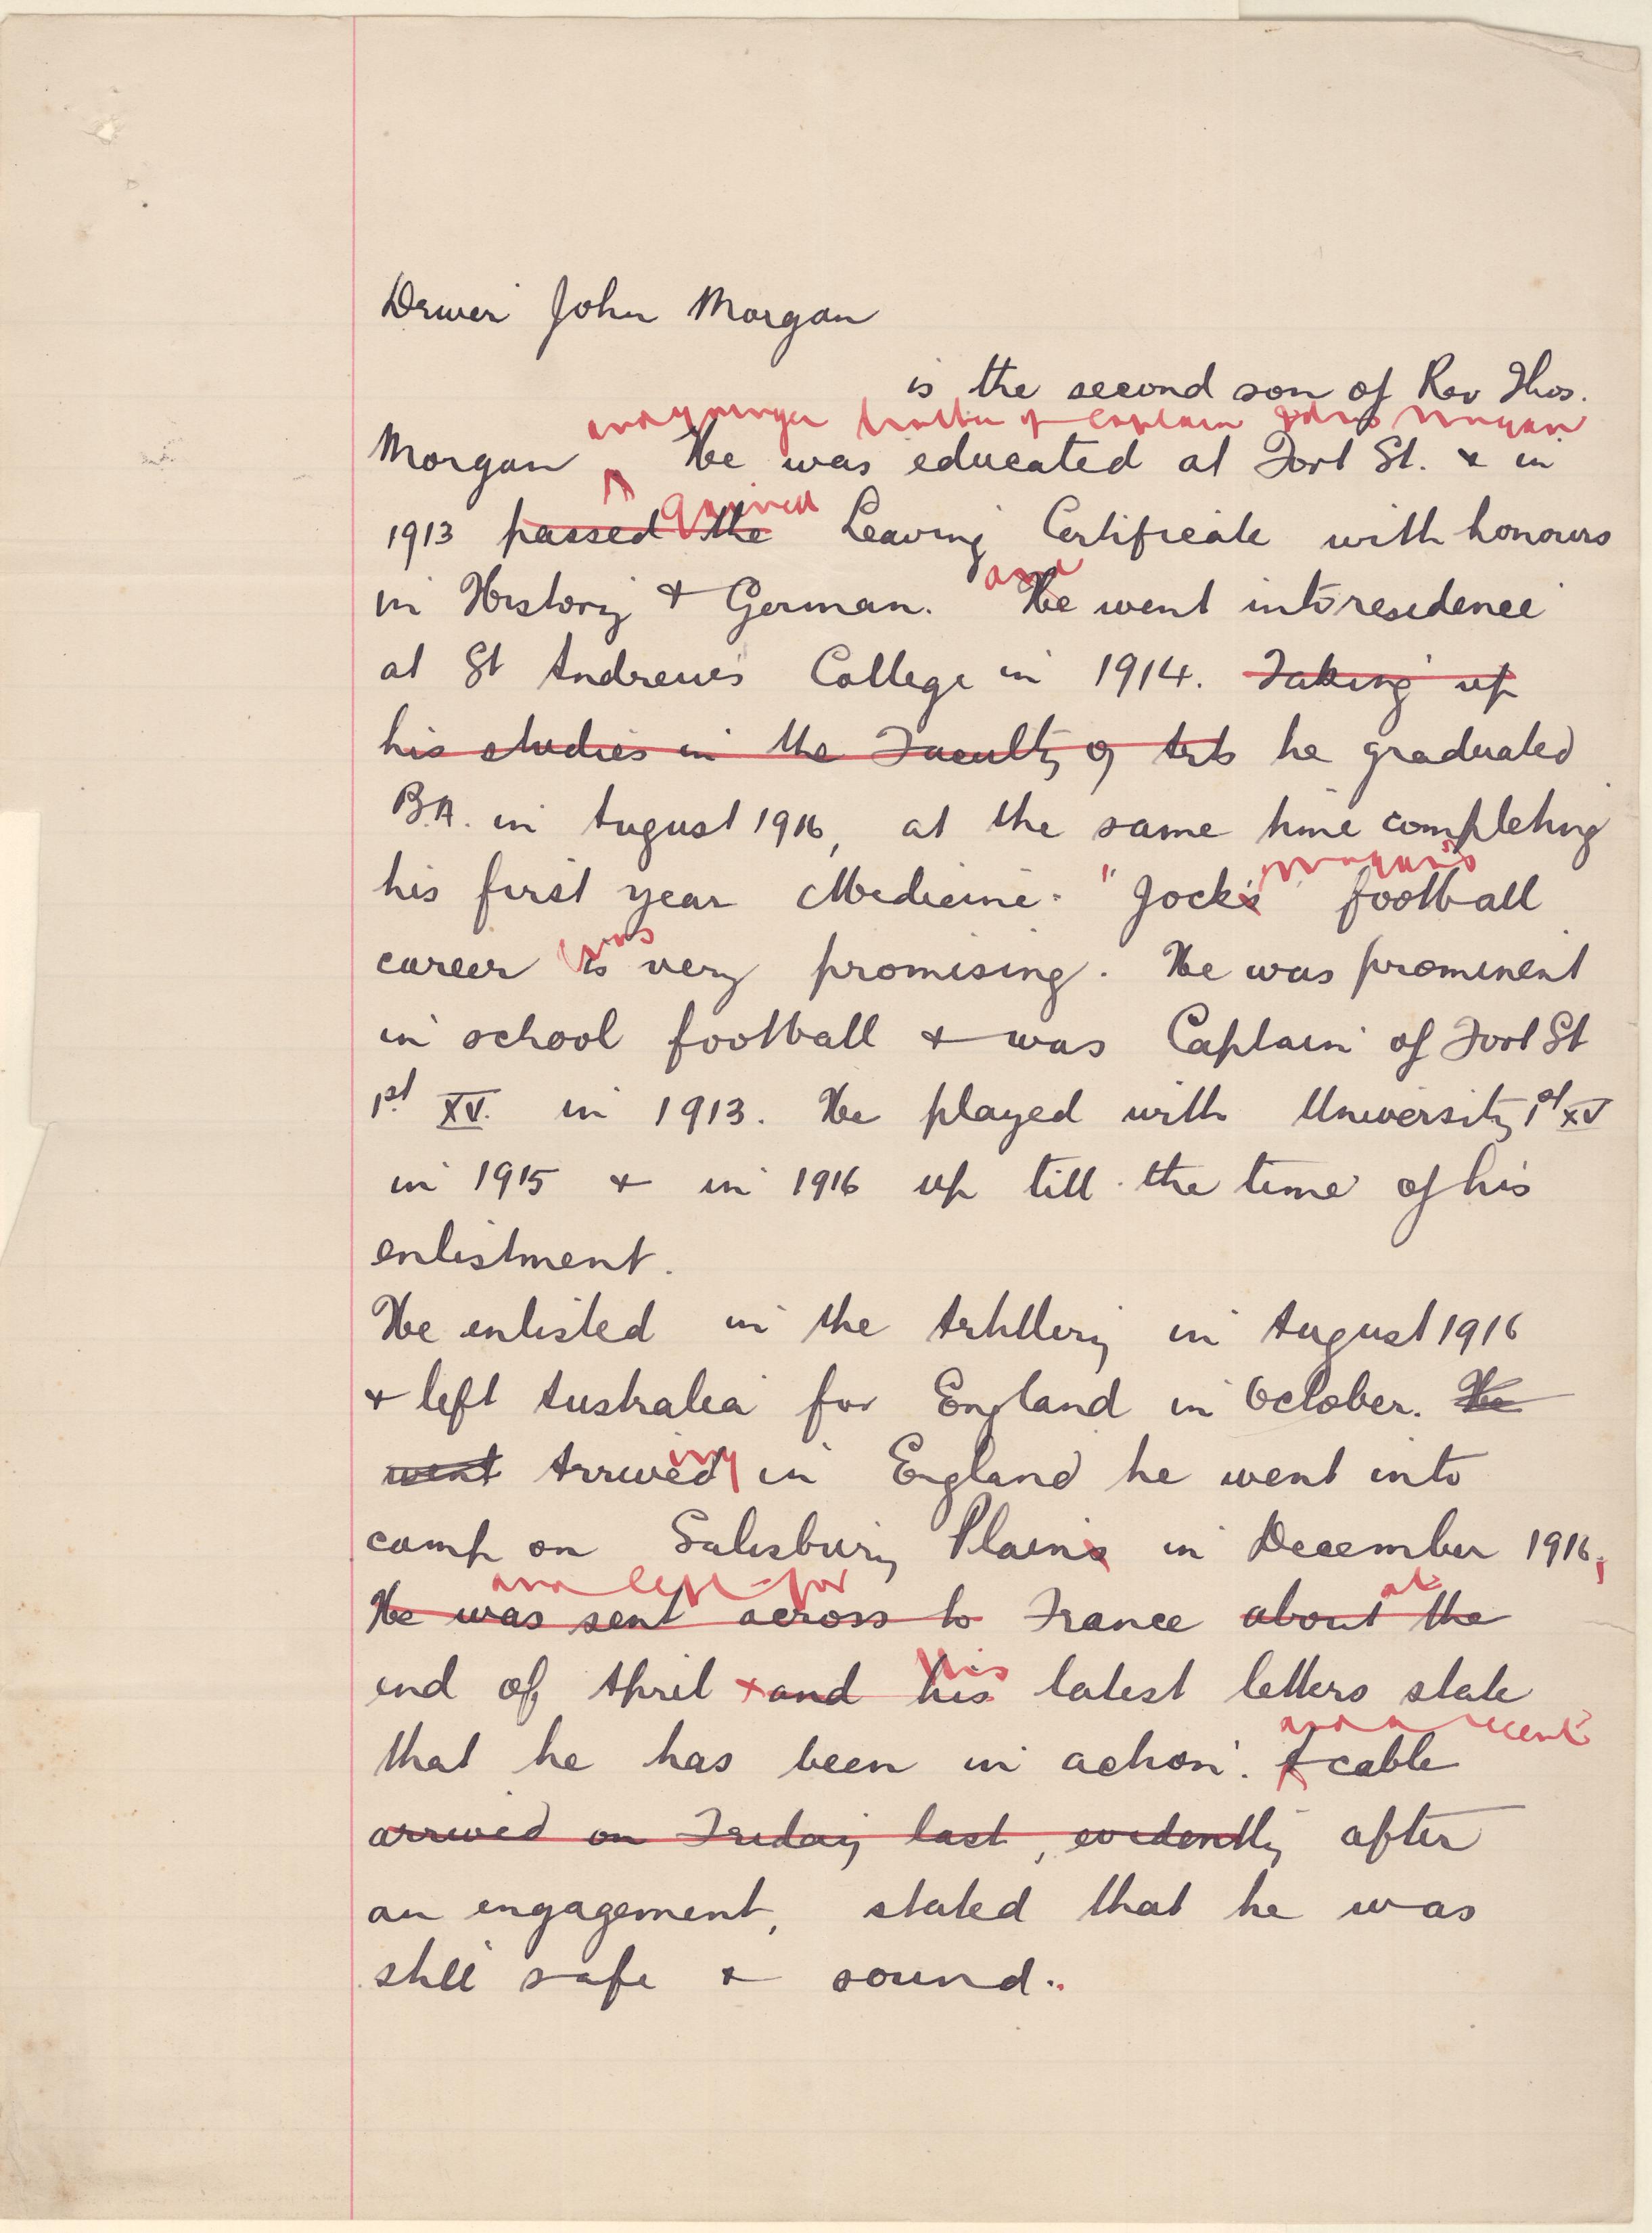 Driver John Morgan
is the second son of Rev Thos.
and younger brother of Captain Morgan
Morgan He was educated at Fort St. & in
gained
1913 passed the Leaving Certificate with honours
and
in History & German. He went into residence
at St Andrew's College in 1914. Taking up
his studies in the Faculty of Arts he graduated
B.A. in August 1916, at the same time completing
Morgan's
his first year Medicine. "Jock's" football
was
career is very promising. He was prominent
in school football & was Captain of Fort St
1st XV. in 1913. He played with University 1st XV
in 1915 & in 1916 up till the time of his
enlistment.
He enlisted in the Artillery in August 1916
& left Australia for England in October. He
ing
went Arrived in England he went into
camp on Salisbury Plains in December 1916,
and left for at
He was sent across to France about the
his
end of April & and his latest letters state
and a recent
that he has been in action. A cable
arrived on Friday last, evidently after
an engagement, stated that he was
still safe & sound.